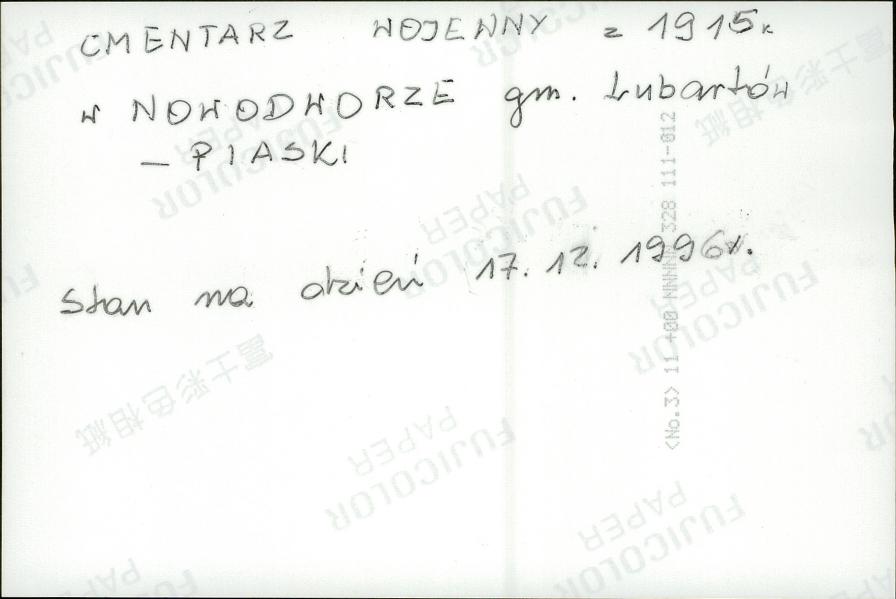 CMENTARZ WOJENNY z 1915r.
w NOWODWORZE gm. Lubartów
- PIASKI
Stan na dzień 17.12.1996r.
<No.3> 11+00 NNNNN 328 111-012
FUJICOLOR
PAPER
富士彩色相紙